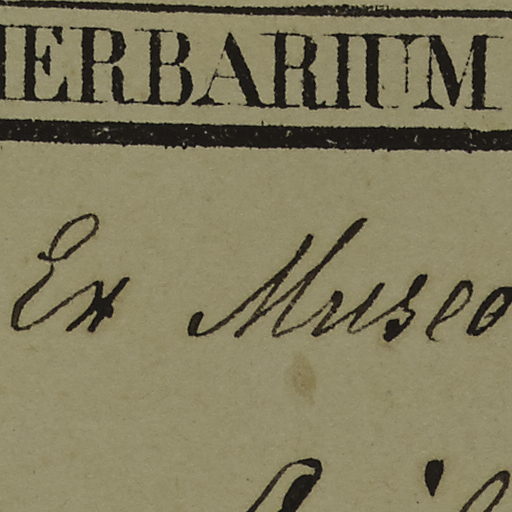 HERBARIUM
Ex Museo